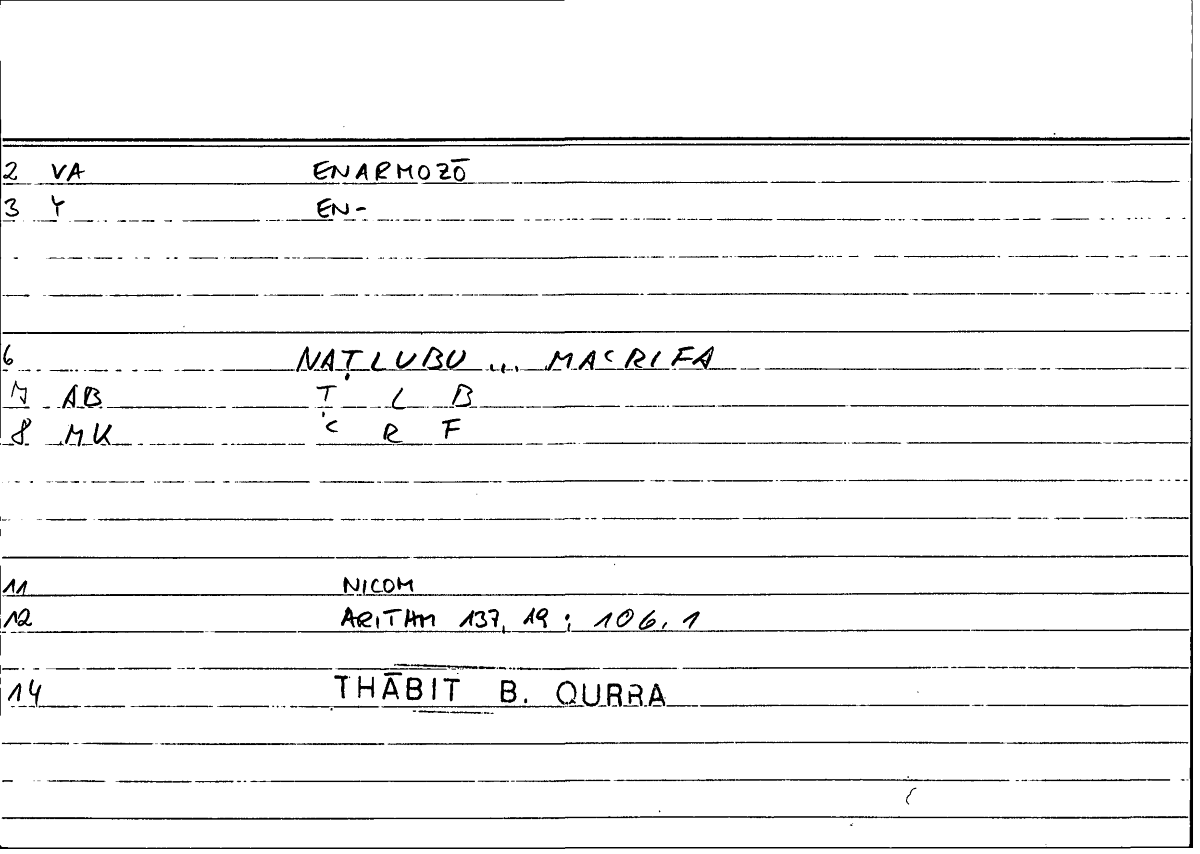 2 VA ENARMOZŌ
3 Y EN-
6 NAṬLUBU ... MAʿRIFA
7 AB Ṭ L B
8 MK ʿ R F
11 NICOM
12 ARITHM 137, 19 ; 106, 1
14 THĀBIT B. QURRA